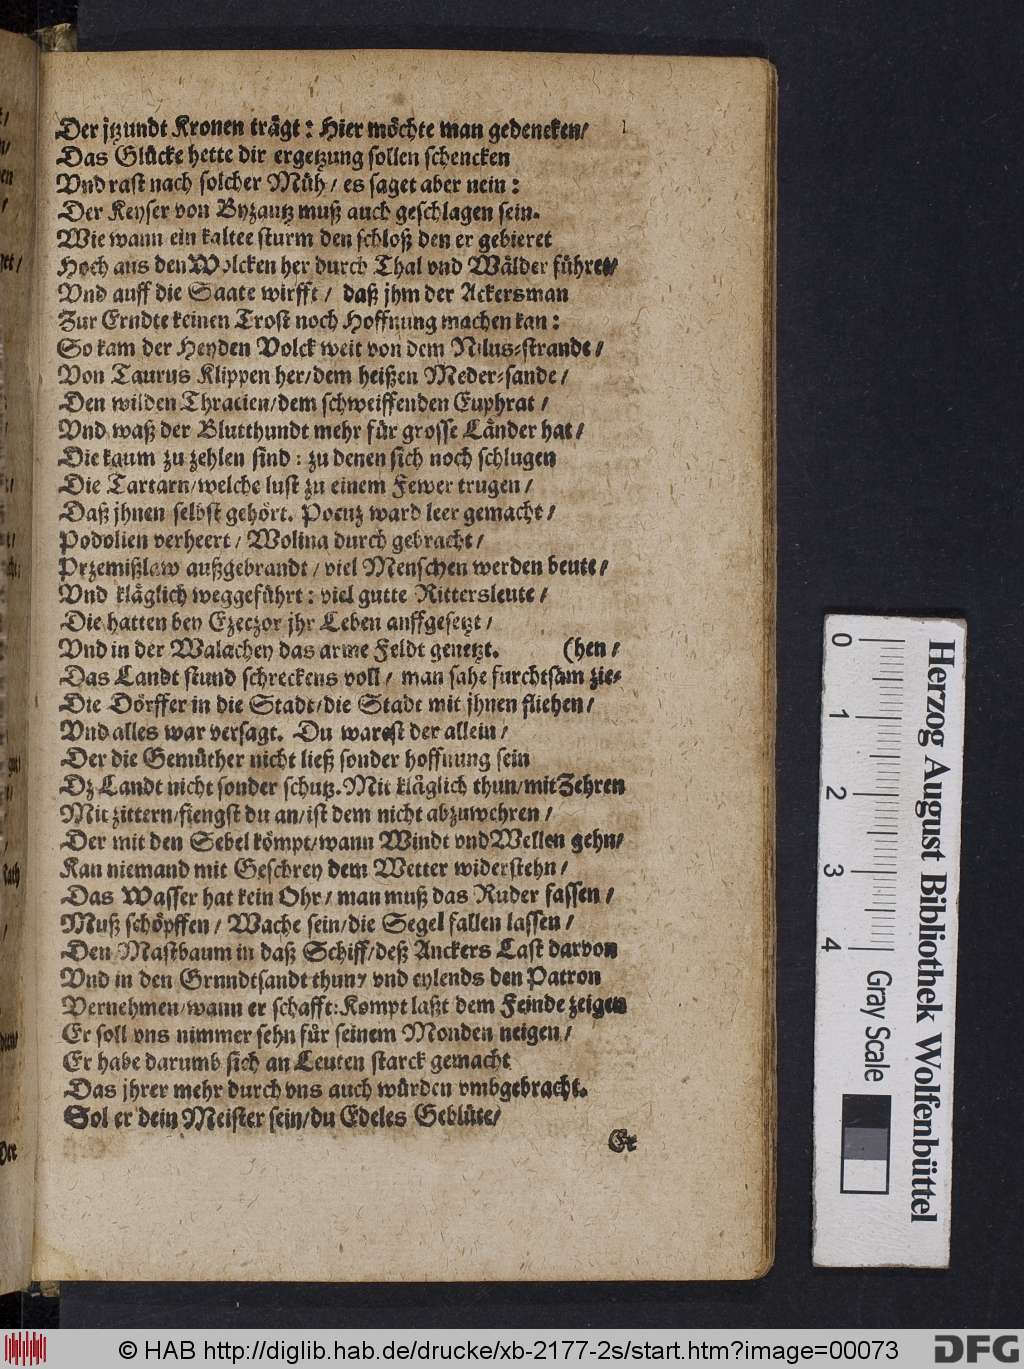 Der jtzundt Kronen trägt: Hier möchte man gedencken/
Das Glücke hette dir ergetzung sollen schencken
Vnd rast nach solcher Müh/ es saget aber nein:
Der Keyser von Byzantz muß auch geschlagen sein.
Wie wann ein kaltee sturm den schloß den er gebieret
Hoch aus den Wolcken her durch Thal vnd Wälder führet/
Vnd auff die Saate wirfft/ daß jhm der Ackersman
Zur Erndte keinen Trost noch Hoffnung machen kan:
So kam der Heyden Volck weit von dem Nilus-strande/
Von Taurus Klippen her/dem heißen Meder-sande/
Den wilden Thracien/dem schweiffenden Euphrat/
Vnd waß der Blutthundt mehr für grosse Länder hat/
Die kaum zu zehlen sind: zu denen sich noch schlugen
Die Tartarn/welche lust zu einem Fewer trugen/
Daß jhnen selbst gehört. Pocuz ward leer gemacht/
Podolien verheert/ Wolina durch gebracht/
Przemißlaw außgebrandt/ viel Menschen werden beute/
Vnd kläglich weggeführt: viel gutte Rittersleute/
Die hatten bey Czeczor jhr Leben auffgesetzt/
Vnd in der Walachey das arme Feldt genetzt. (hen/
Das Landt stund schreckens voll/ man sahe furchtsam zie-
Die Dörffer in die Stadt/die Stadt mit jhnen fliehen/
Vnd alles war versagt. Du warest der allein/
Der die Gemüther nicht ließ sonder hoffnung sein
Dz Landt nicht sonder schutz. Mit kläglich thun/mit Zehren
Mit zittern/fiengst du an/ist dem nicht abzuwehren/
Der mit den Sebel kömpt/wann Windt vnd Wellen gehn/
Kan niemand mit Geschrey dem Wetter widerstehn/
Das Wasser hat kein Ohr/ man muß das Ruder fassen/
Muß schöpffen/ Wache sein/die Segel fallen lassen/
Den Mastbaum in daß Schiff/deß Anckers Last darvon
Vnd in den Grnndtsandt thun/ vnd eylends den Patron
Vernehmen/wann er schafft: Kompt laßt dem Feinde zeigen
Er soll vns nimmer sehn für seinem Monden neigen/
Er habe darumb sich an Leuten starck gemacht
Das jhrer mehr durch vns auch würden vmbgebracht.
Sol er dein Meister sein/du Edeles Geblüte/
Er
0 1 2 3 4
Gray Scale
Herzog August Bibliothek Wolfenbüttel
© HAB http://diglib.hab.de/drucke/xb-2177-2s/start.htm?image=00073
DFG